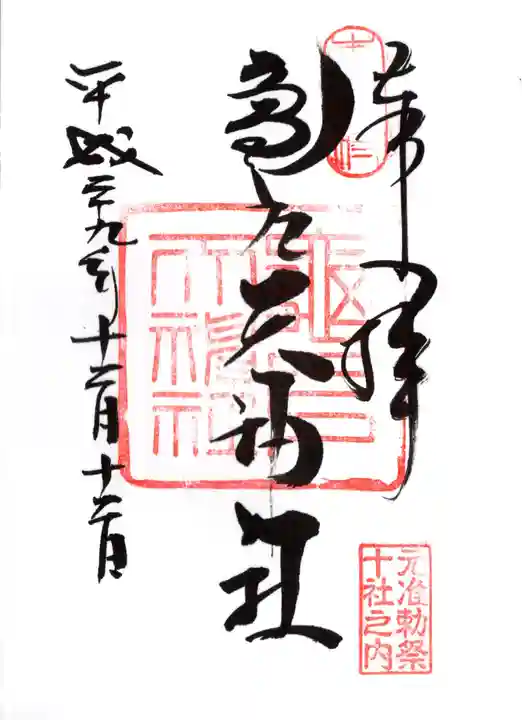 奉拝
元准勅祭
十社之内
亀戸天神社
平成二十九年十二月十二日